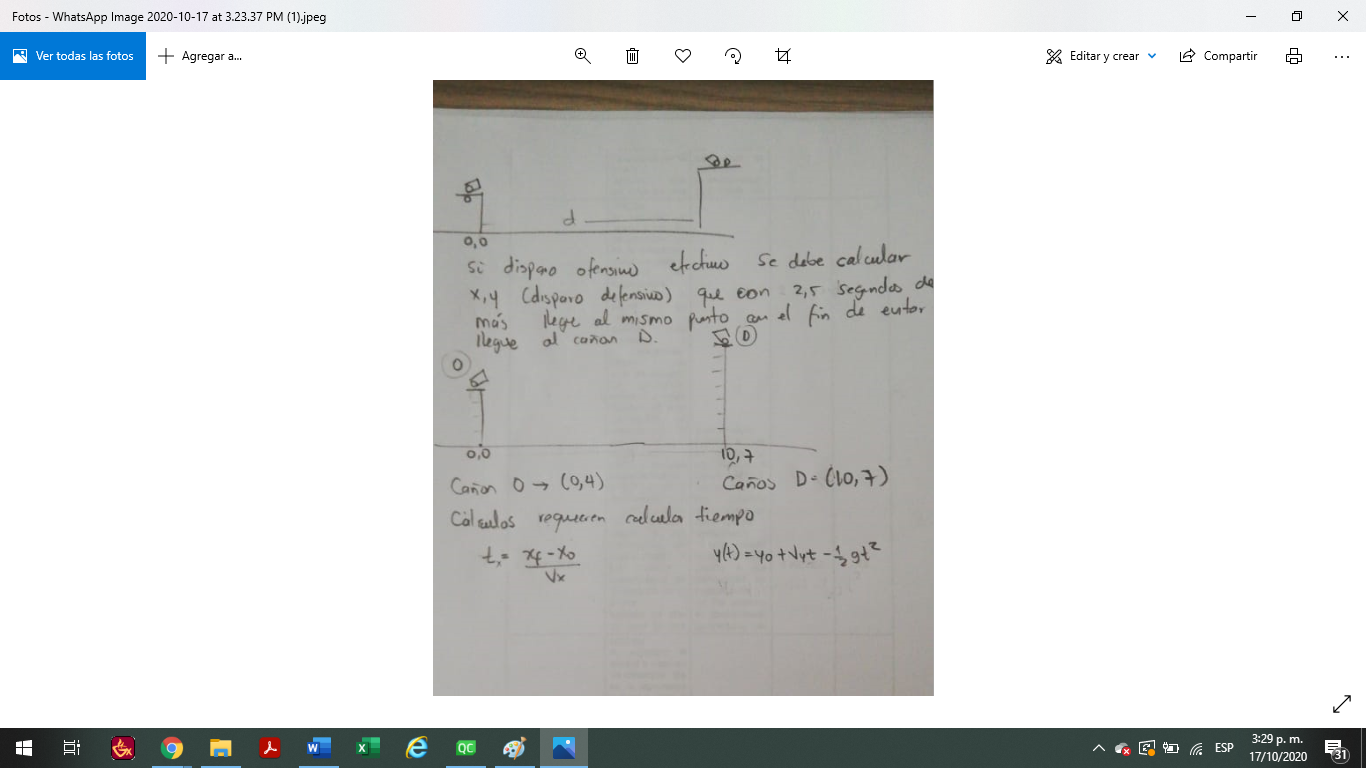 Fotos - WhatsApp Image 2020-10-17 at 3.23.37 PM (1).jpeg
Ver todas las fotos
Agregar a...
Editar y crear
Compartir
D
d
0,0
Si disparo ofensivo efectivo se debe calcular
x,y (disparo defensivo) que con 2,5 segundos de
más llegue al mismo punto con el fin de evitar
llegue al cañon D.
D
O
0,0
10,7
Cañon O → (0,4)
Caños D = (10,7)
Cálculos requieren calcular tiempo
t = xf - xo / Vx
y(t) = yo + Vyt - 1/2 gt²
W
X
QC
ESP
3:29 p. m.
17/10/2020
31